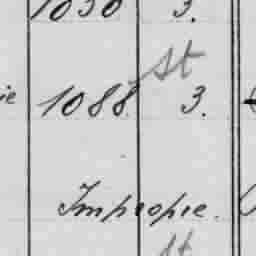 1030 3.
St
ie 1088. 3.
Impropie.
St